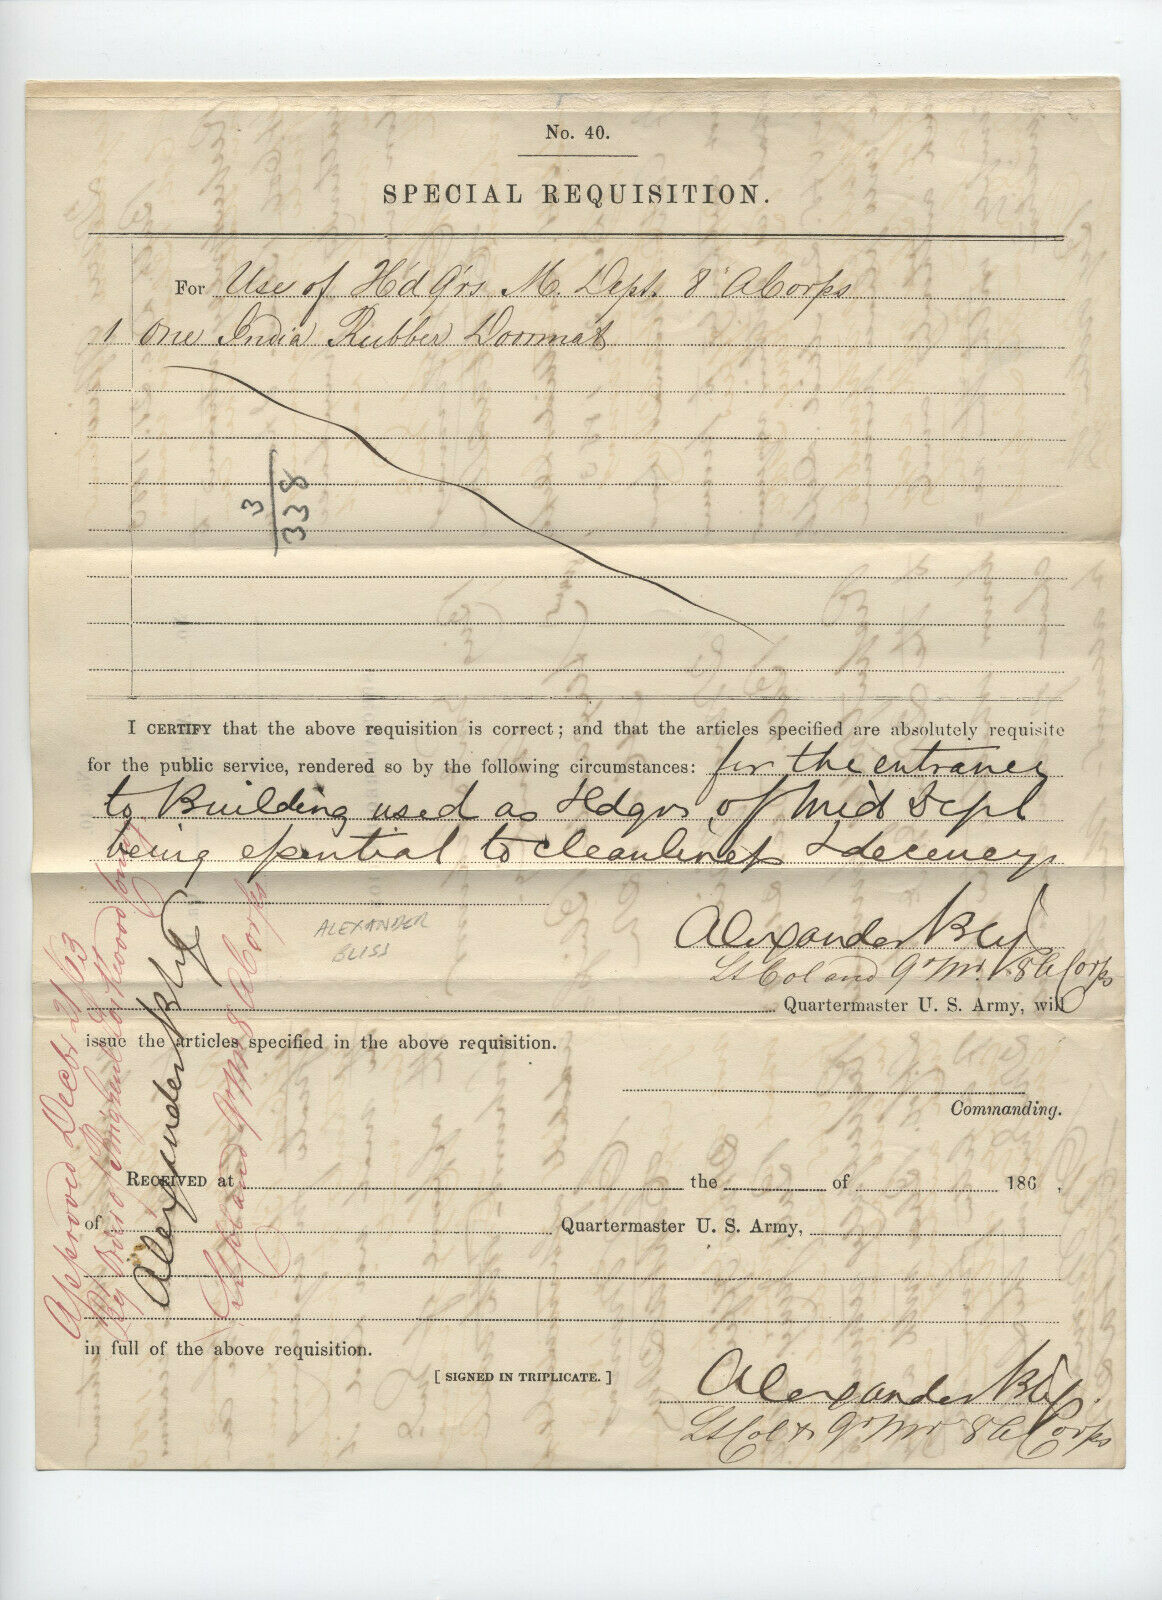 No. 40.
SPECIAL REQUISITION.
For Use of H'd Q'rs M. Dept. 8" A Corps
1 One India Rubber Doormat
3
338
I CERTIFY that the above requisition is correct; and that the articles specified are absolutely requisite
for the public service, rendered so by the following circumstances: for the entrance
to Building used as Hdqrs of Mid Dept
being essential to cleanliness & decency
Alexander Bliss
Lt Col and Qr Mr 8 A Corps
ALEXANDER
BLISS
Quartermaster U. S. Army, will
issue the articles specified in the above requisition.
Commanding.
RECEIVED at the of 186 ,
of Quartermaster U. S. Army,
in full of the above requisition.
[ SIGNED IN TRIPLICATE. ]
Alexander Bliss
Lt Col & Qr Mr 8 A Corps
Approved Decbr 21/63
By order Lockwood Comdg
Alexander Bliss
Lt Col and Qr Mr 8 A Corps